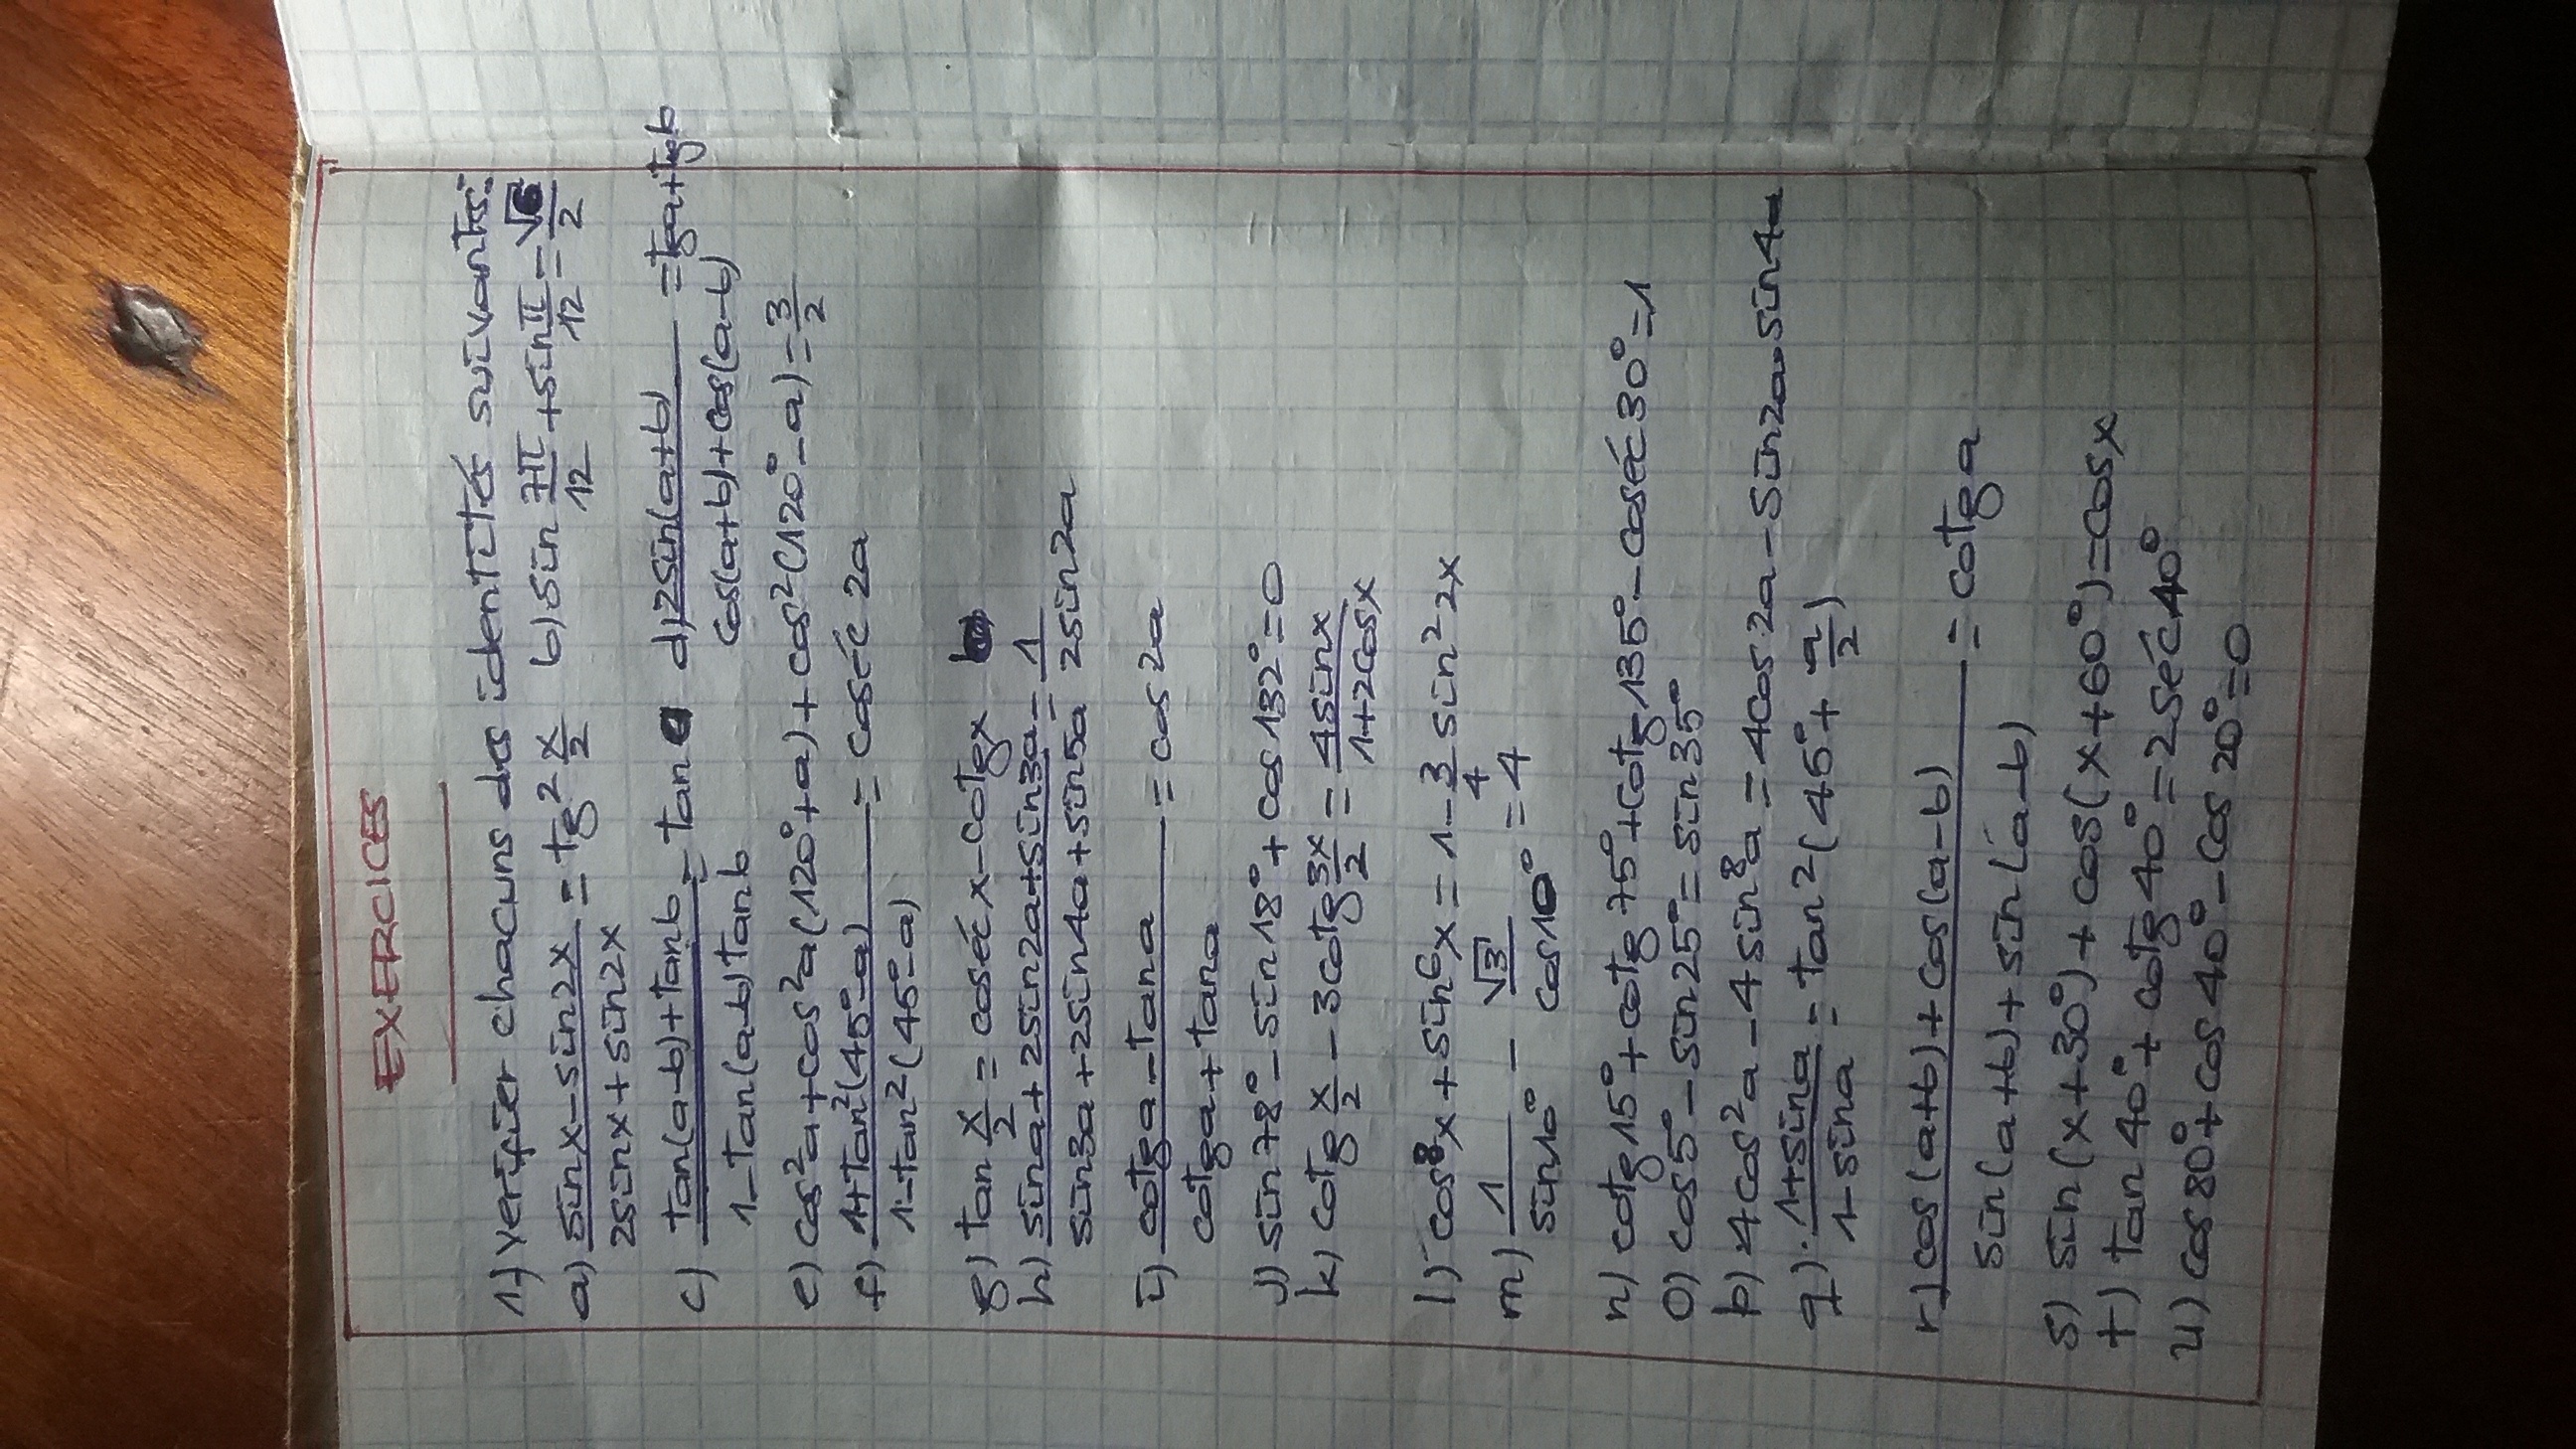 EXERCICES
1) verifier chacuns des identités suivantes:
a) (sinx-sin2x)/(2sinx+sin2x) = tg² x/2 b) sin 7π/12 + sin π/12 = √6/2
c) (tan(a-b)+tanb)/(1-tan(a-b)tanb) = tan d) 2sin(a+b)/(cos(a+b)+cos(a-b)) = tga+tgb
e) cos²a+cos²a(120°+a)+cos²(120°-a)=3/2
f) (1+tan²(45°-a))/(1-tan²(45°-a)) = coséc 2a
g) tan x/2 = coséc x-cotgx
h) (sina+2sin2a+sin3a)/(sin3a+2sin4a+sin5a) = 1/(2sin2a)
i) (cotga-tana)/(cotga+tana) = cos2a
j) sin78°-sin18°+cos132°=0
k) cotg x/2 - 3cotg 3x/2 = 4sinx/(1+2cosx)
l) cos⁸x+sin⁶x=1-3/4 sin²2x
m) 1/sin10° - √3/cos10° = 4
n) cotg15°+cotg75°+cotg135°-coséc30°=1
o) cos5°-sin25°=sin35°
p) 4cos²a-4sin⁸a=4cos2a-sin2a sin4a
q) (1+sina)/(1-sina) = tan2(45°+a/2)
r) (cos(a+b)+cos(a-b))/(sin(a+b)+sin(a-b)) = cotga
s) sin(x+30°)+cos(x+60°)=cosx
t) tan40°+cotg40°=2séc40°
u) cos80°+cos40°-cos20°=0